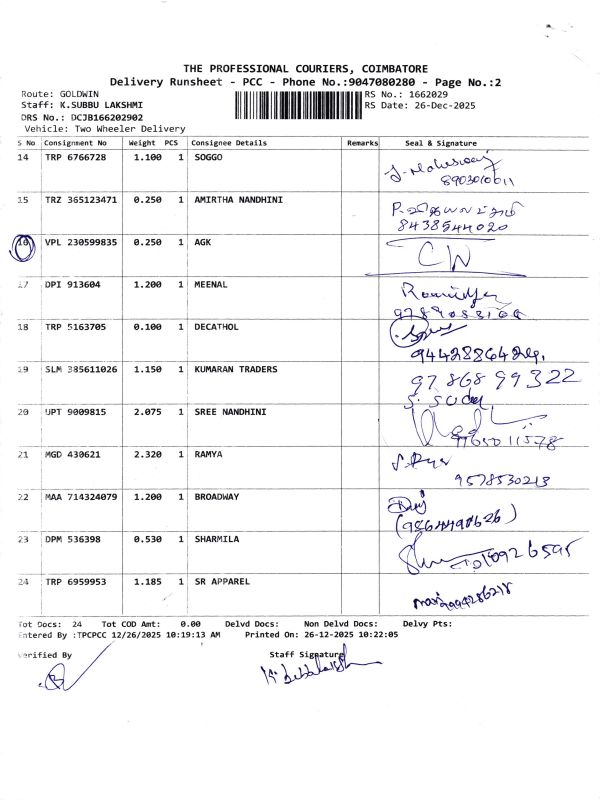 THE PROFESSIONAL COURIERS, COIMBATORE
Delivery Runsheet - PCC - Phone No.:9047080280 - Page No.:2
Route: GOLDWIN RS No.: 1662029
Staff: K.SUBBU LAKSHMI RS Date: 26-Dec-2025
DRS No.: DCJB166202902
Vehicle: Two Wheeler Delivery
S No Consignment No Weight PCS Consignee Details Remarks Seal & Signature
14 TRP 6766728 1.100 1 SOGGO
8903010011
15 TRZ 365123471 0.250 1 AMIRTHA NANDHINI
8438544020
16 VPL 230599835 0.250 1 AGK CW
17 DPI 913604 1.200 1 MEENAL
18 TRP 5163705 0.100 1 DECATHOL
19 SLM 385611026 1.150 1 KUMARAN TRADERS 97868 99322
S. Sudu
20 UPT 9009815 2.075 1 SREE NANDHINI
21 MGD 430621 2.320 1 RAMYA
9578530213
22 MAA 714324079 1.200 1 BROADWAY
(9864490626)
23 DPM 536398 0.530 1 SHARMILA
24 TRP 6959953 1.185 1 SR APPAREL
Tot Docs: 24 Tot COD Amt: 0.00 Delvd Docs: Non Delvd Docs: Delvy Pts:
Entered By :TPCPCC 12/26/2025 10:19:13 AM Printed On: 26-12-2025 10:22:05
Verified By Staff Signature